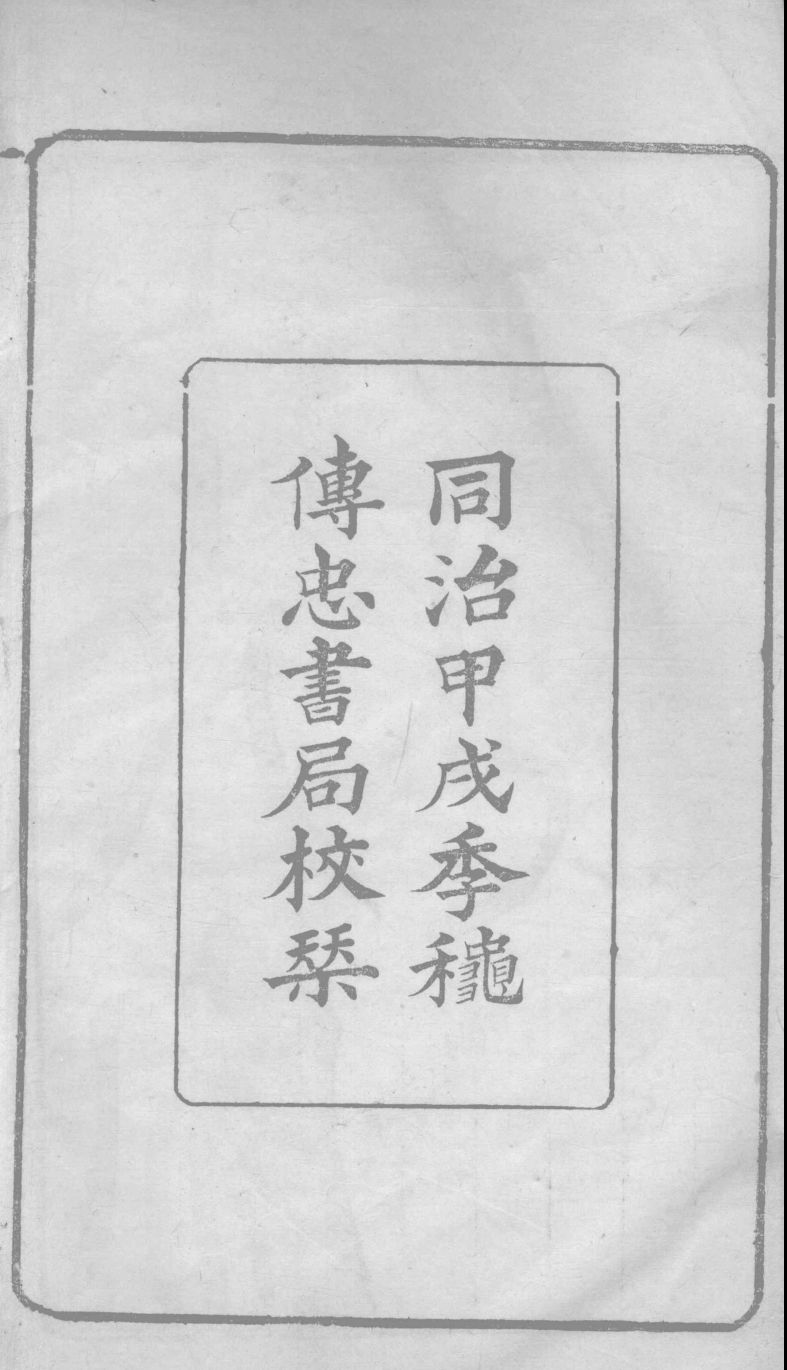 同治甲戌季龝
傳忠書局校栞